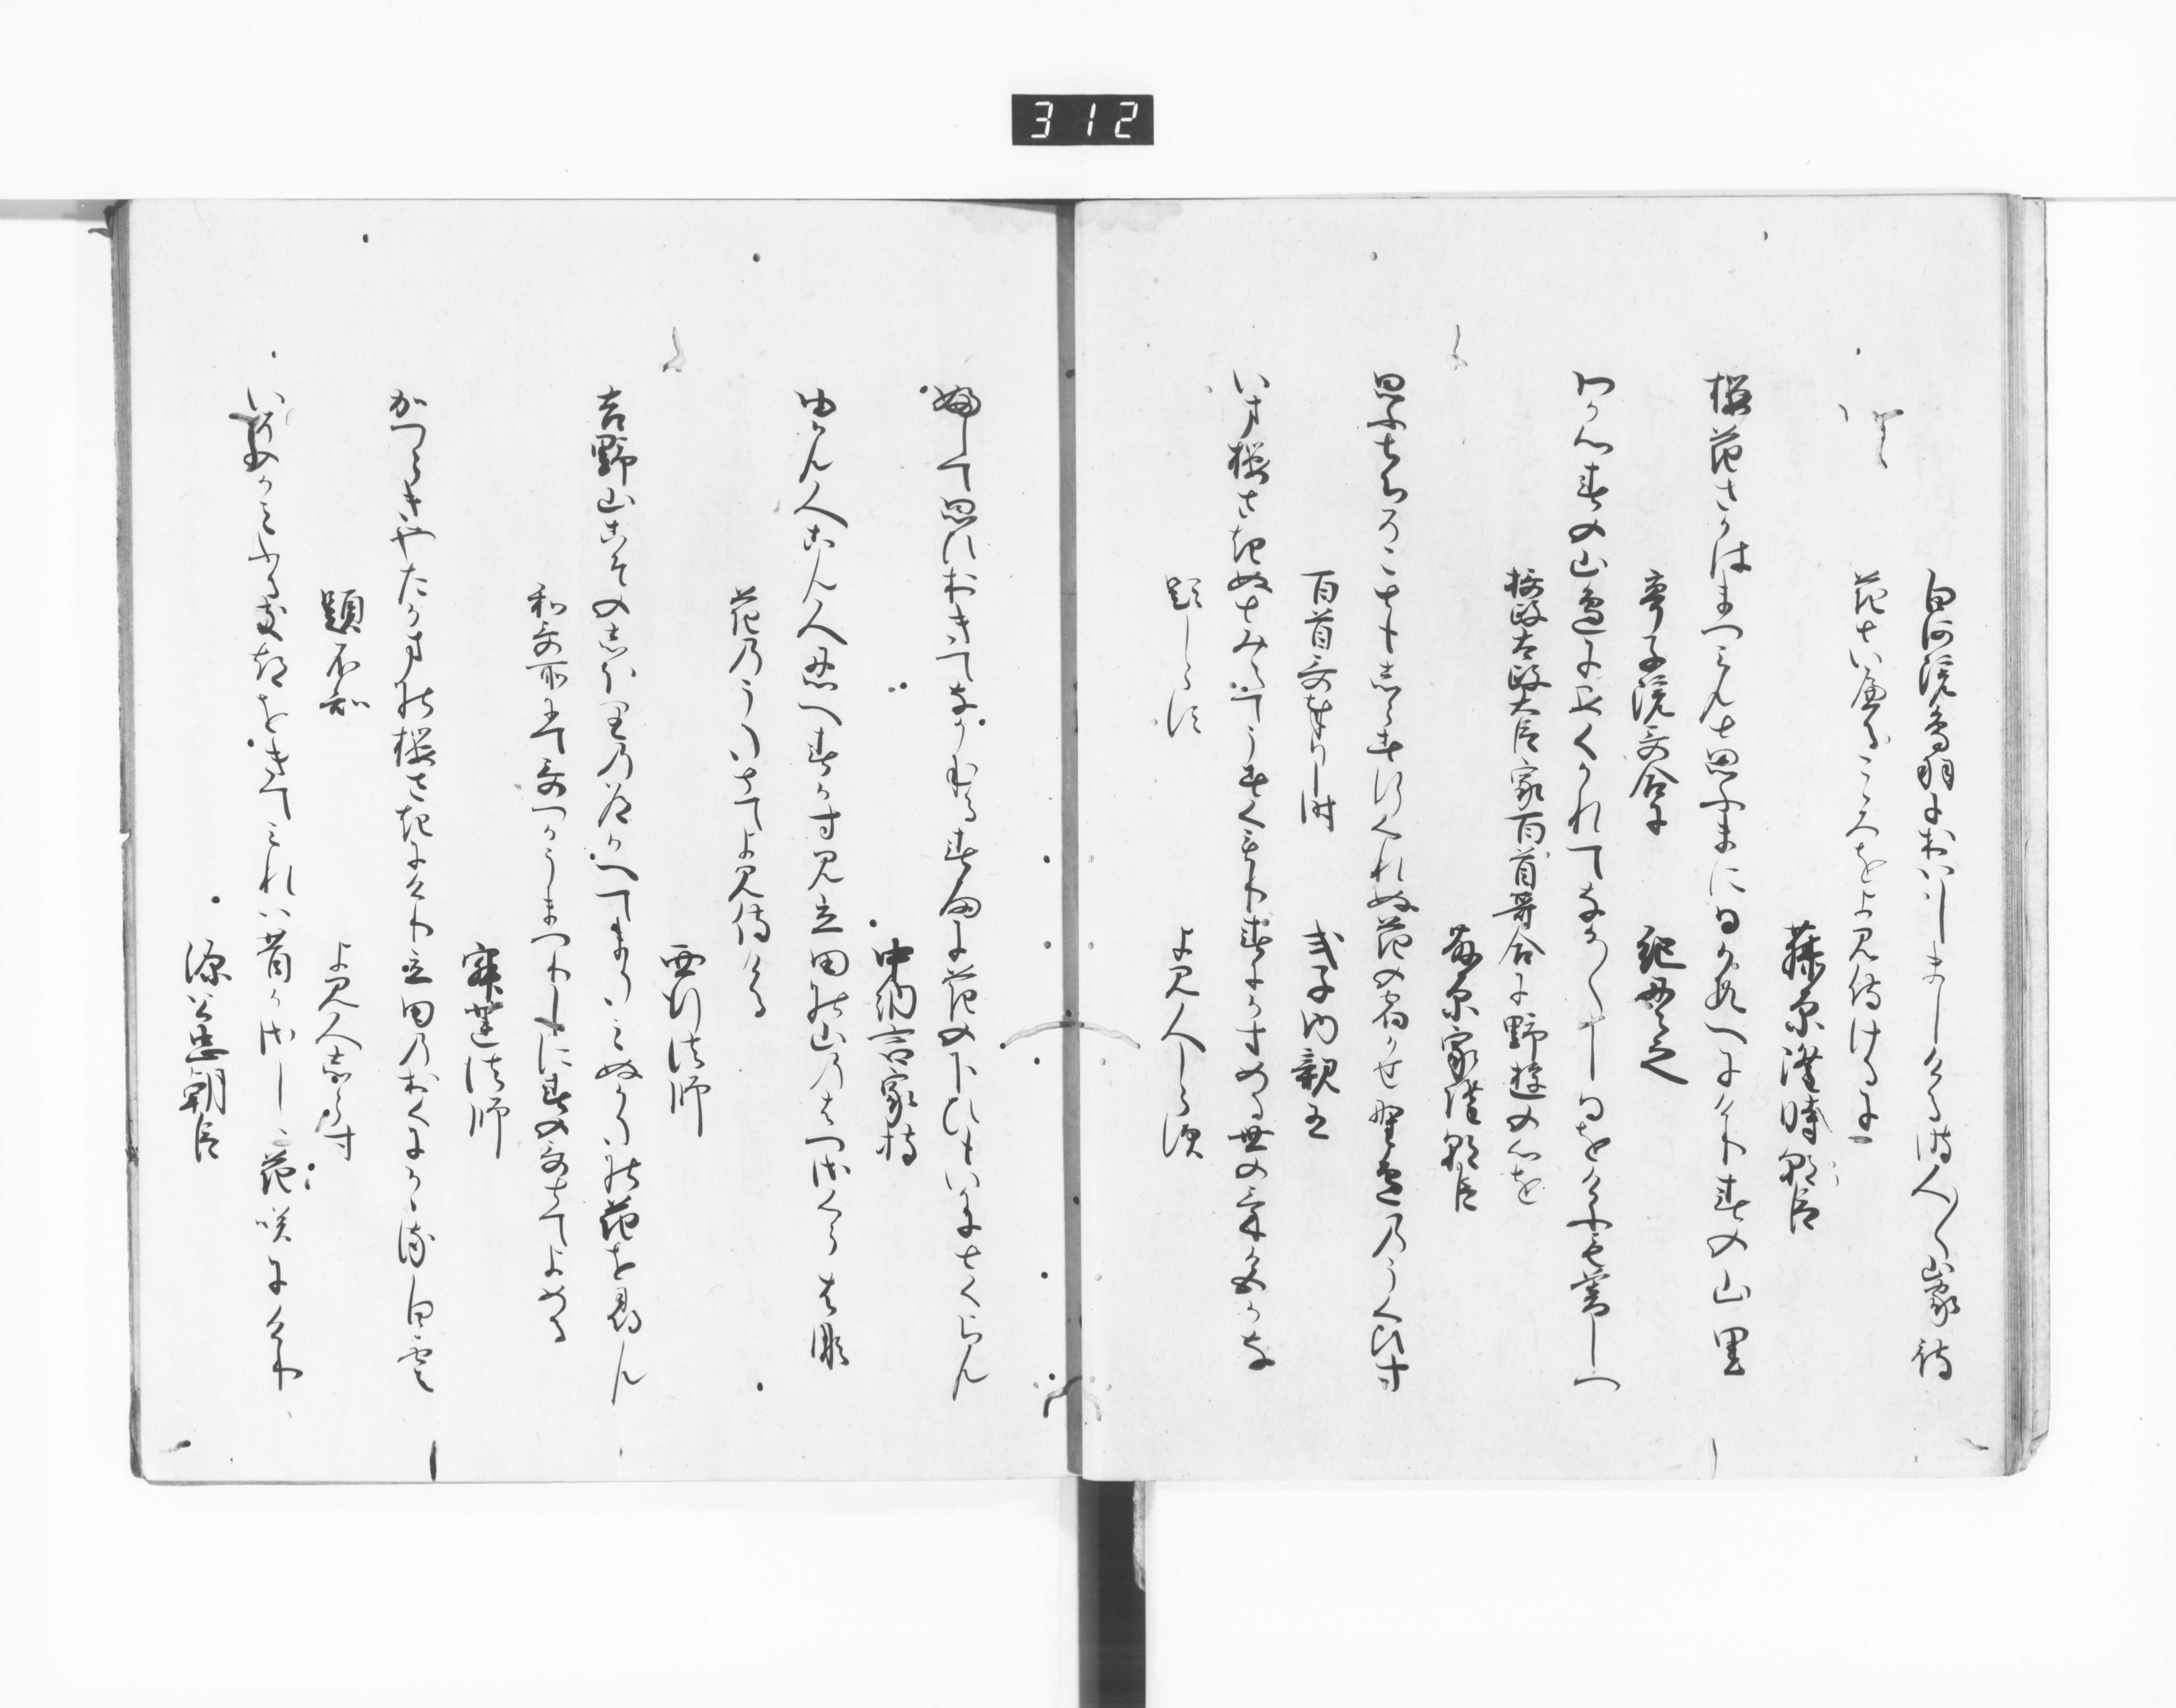 312
白河院鳥羽におはしましける時人〻山家待
花といへるこゝろをよみ侍けるに
藤原隆時朝臣
桜花さかはまつみんと思ふまに日かすへにけり春の山里
亭子院哥合に
紀貫之
わか心春の山辺にあくかれてなか〳〵し日をけふも暮しつ
摂政太政大臣家百首哥合に野遊の心を
藤原家隆朝臣
思ふとちそこともしらす行くれぬ花の宿かせ野辺のうくひす
百首哥奉りし時
式子内親王
いま桜さきぬとみえてうすくもり春にかすめる世のけしきかな
題しらす
よみ人しらす
ふして思ひおきてなかむる春雨に花の下ひもいかにとくらん
中納言家持
ゆかん人こん人忍へ春かすみ立田の山のはつさくらはな
花のうたとてよみ侍ける
西行法師
吉野山こそのしほりの道かへてまたみぬかたの花を尋ん
和哥所にて哥つかうまつりしに春の哥とてよめる
寂蓮法師
かつらきやたかまの桜さきにけり立田のおくにかゝる白雲
題不知
よみ人しらす
いその神ふるき都をきてみれは昔かさしゝ花咲にけり
源公忠朝臣